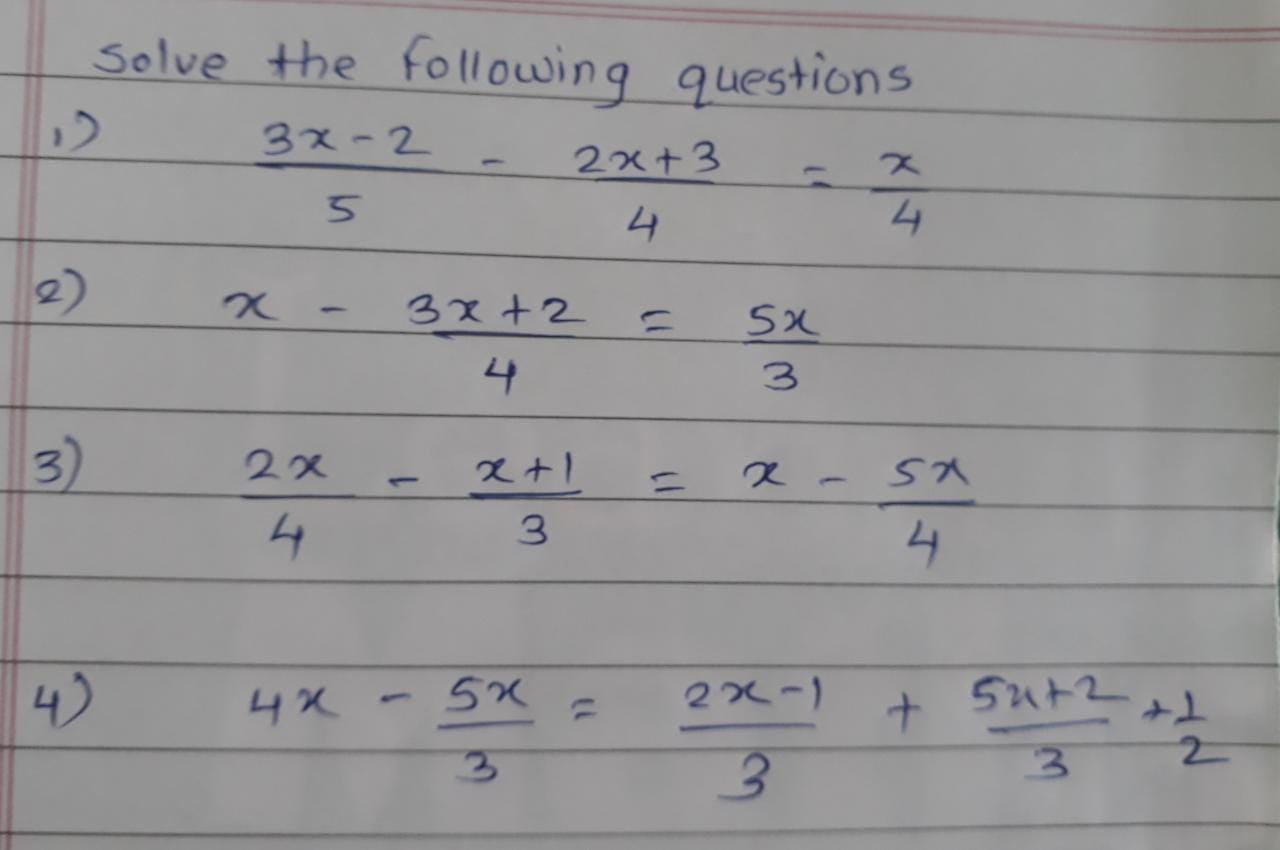 Solve the following questions
1) 3x-2/5 - 2x+3/4 = x/4
2) x - 3x+2/4 = 5x/3
3) 2x/4 - x+1/3 = x - 5x/4
4) 4x - 5x/3 = 2x-1/3 + 5x+2/3 + 1/2